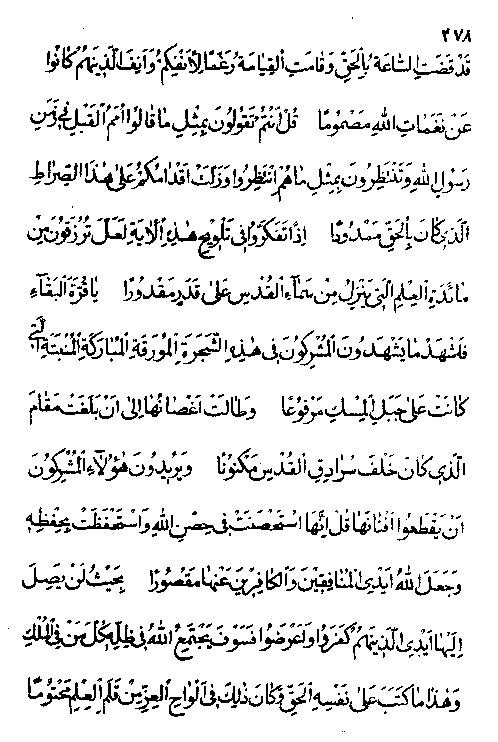 ٤٧٨
قد قضت الساعة بالحق وقامت القيامة رغما لانفكم وانف الذينهم كانوا
عن نغمات الله مصموما قل انتم تقولون بمثل ما قالوا امم القبل في زمن
رسول الله وتنتظرون بمثل ما هم انتظروا وزلت اقدامكم على هذا الصراط
الذي كان بالحق ممدودا اذا تفكروا في تلويح هذه الاية لعل ترزقون من
مائدة العلم التي ينزل من سماء القدس على قدر مقدورا يا قرة البقاء
فاشهد ما يشهدون المشركون في هذه الشجرة المورقة المباركة المنبتة التي
كانت على جبل المسك مرفوعا وطالت اغصانها الى ان بلغت مقام
الذي كان خلف سرادق القدس مكنونا ويريدون هؤلاء المشركون
ان يقطعوا افنانها قل انها استحصنت في حصن الله واستحفظت بحفظه
وجعل الله ايدي المنافقين والكافرين عنها مقصورا بحيث لن يصل
اليها ايدي الذينهم كفروا واعرضوا فسوف يجتمع الله في ظله كل من في الملك
وهذا ما كتب على نفسه الحق وكان ذلك في الواح العز من قلم العلم محتوما